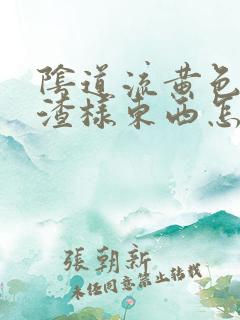 陰道流黄色
渣樣東西怎
張朝新
未经同意禁止转载